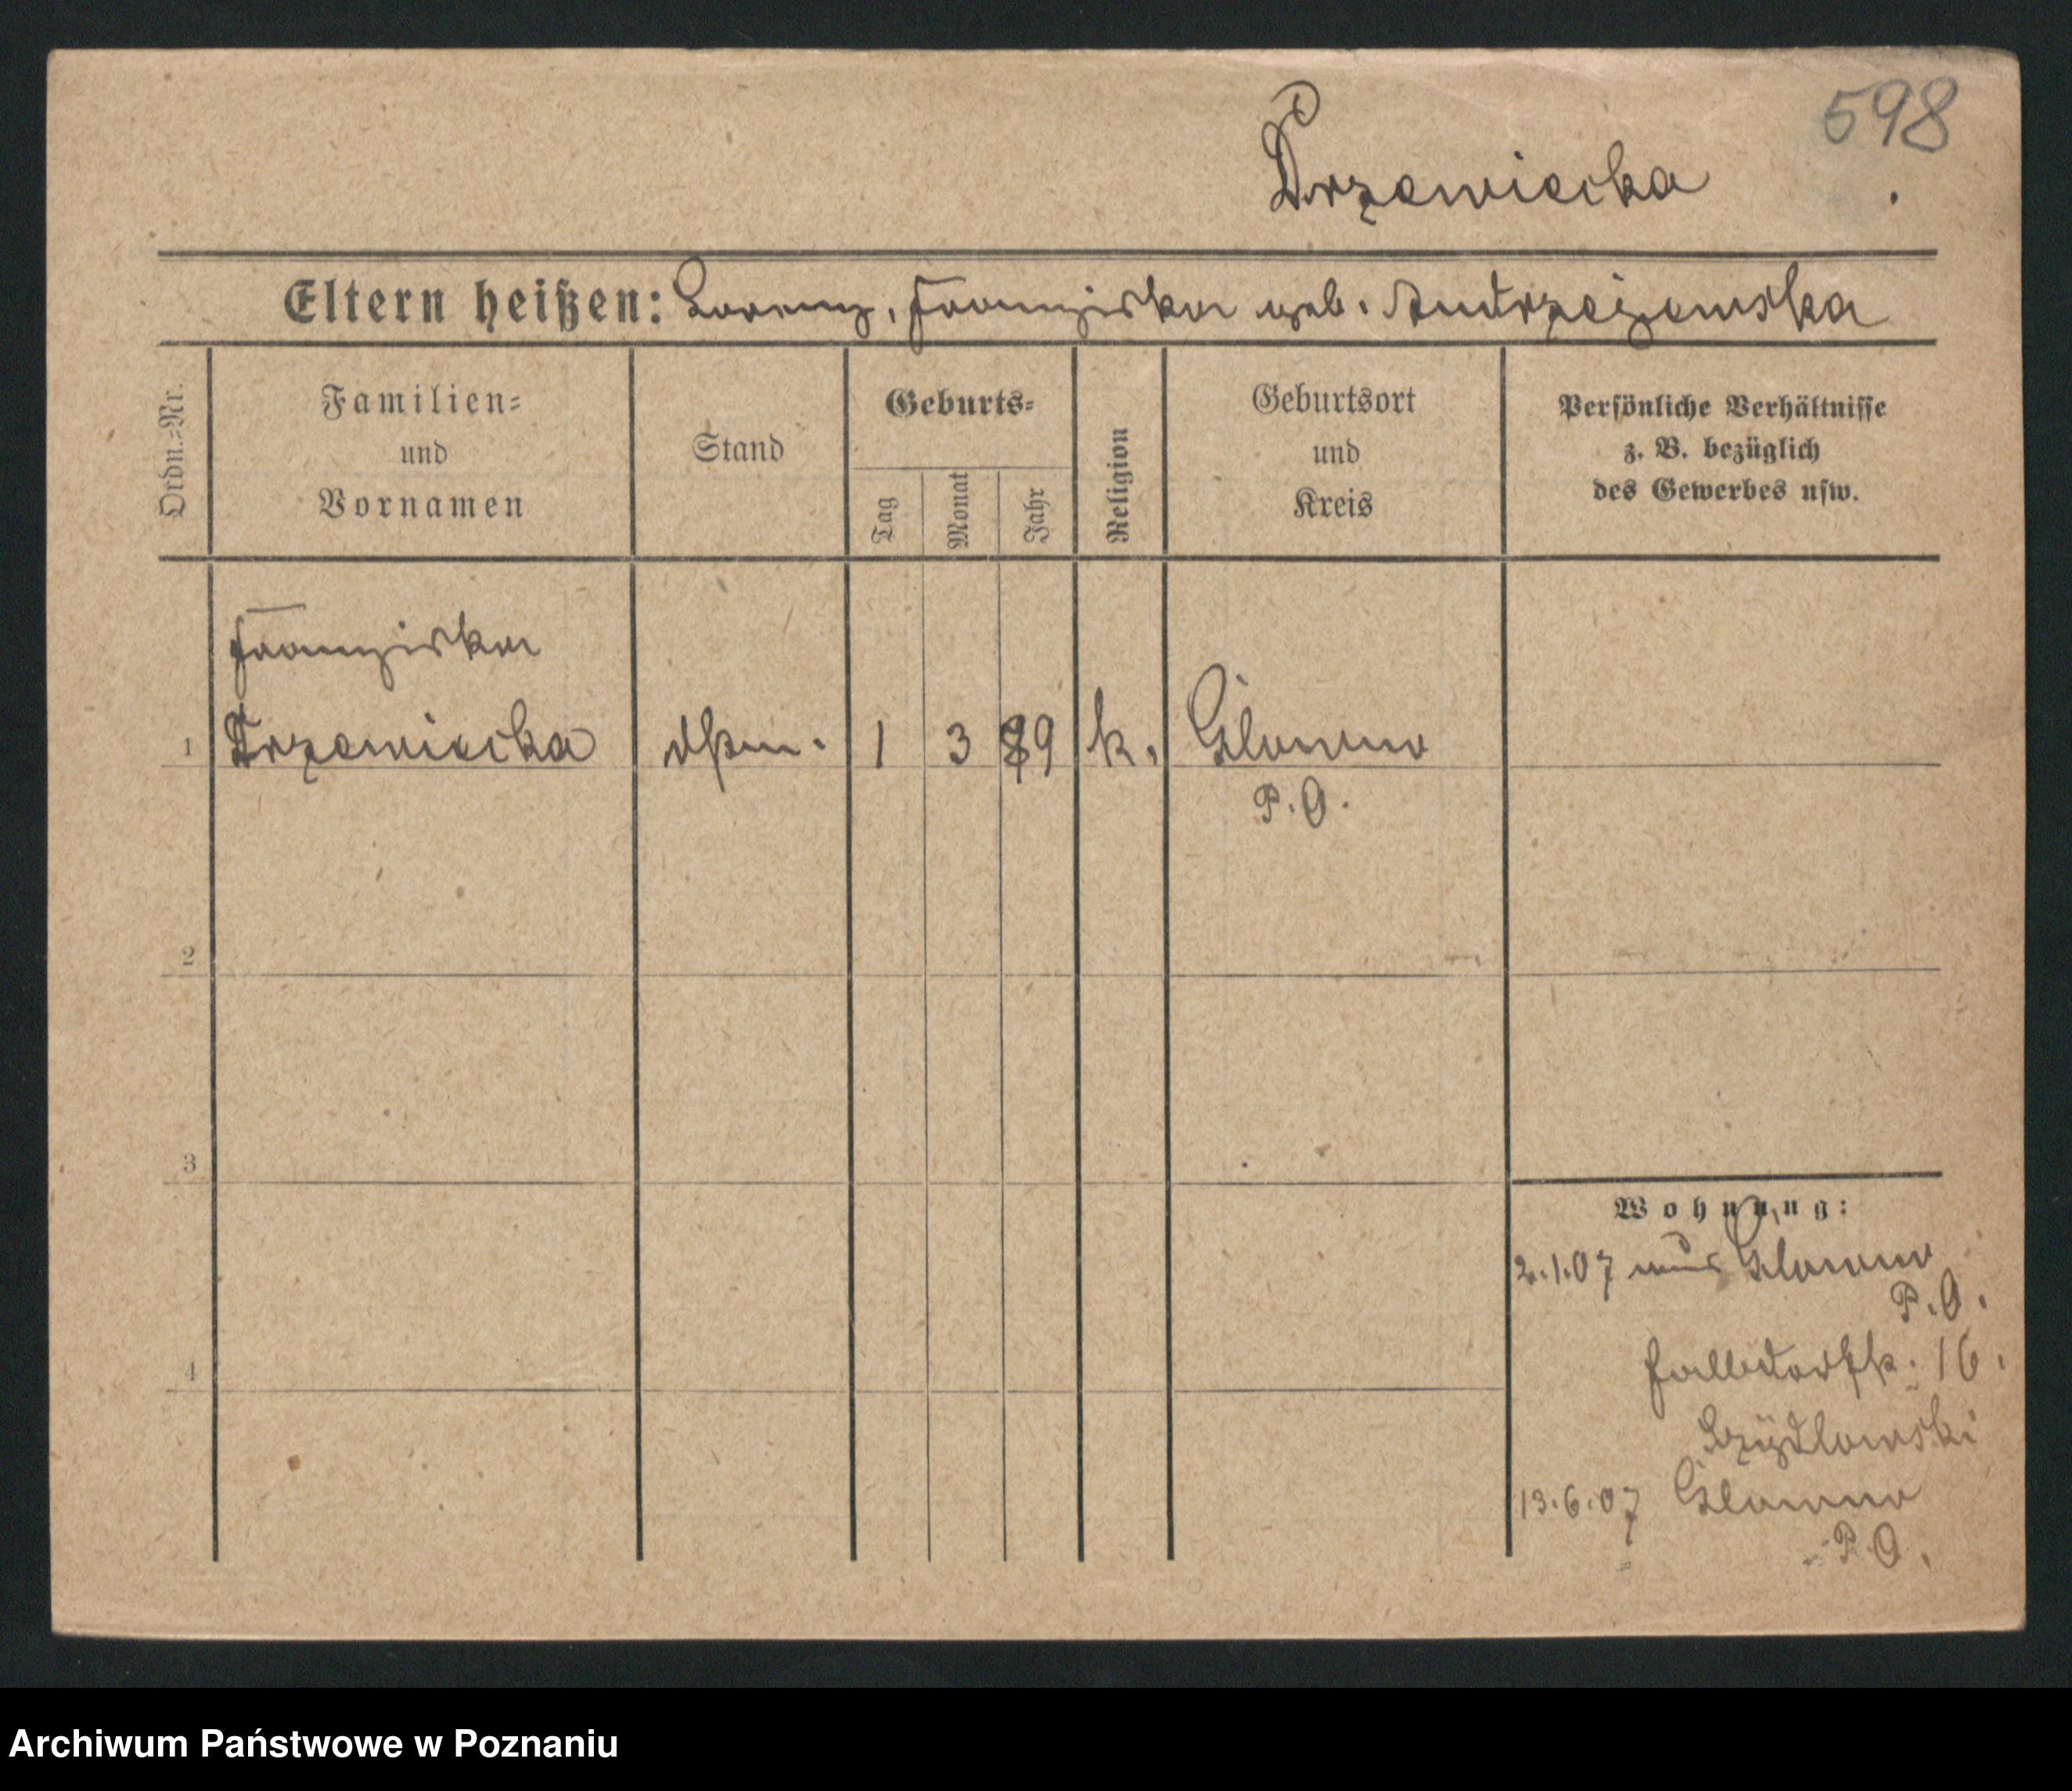 598
Drzewiecka
Eltern heißen: Lorenz, Franziska geb. Andrzejewska
Ordn.=Nr.
Familien=
und
Vornamen
Stand
Geburts=
Tag
Monat
Jahr
Religion
Geburtsort
und
Kreis
Persönliche Verhältnisse
z. B. bezüglich
des Gewerbes usw.
Franziska
1 Drzewiecka 1 3 89 k. Glowno
P. O.
2
3
4
Wohnung:
2.1.07 aus Glowno
P. O.
16.
Szydlowski
13.6.07 Glowno
P. O.
Archiwum Państwowe w Poznaniu